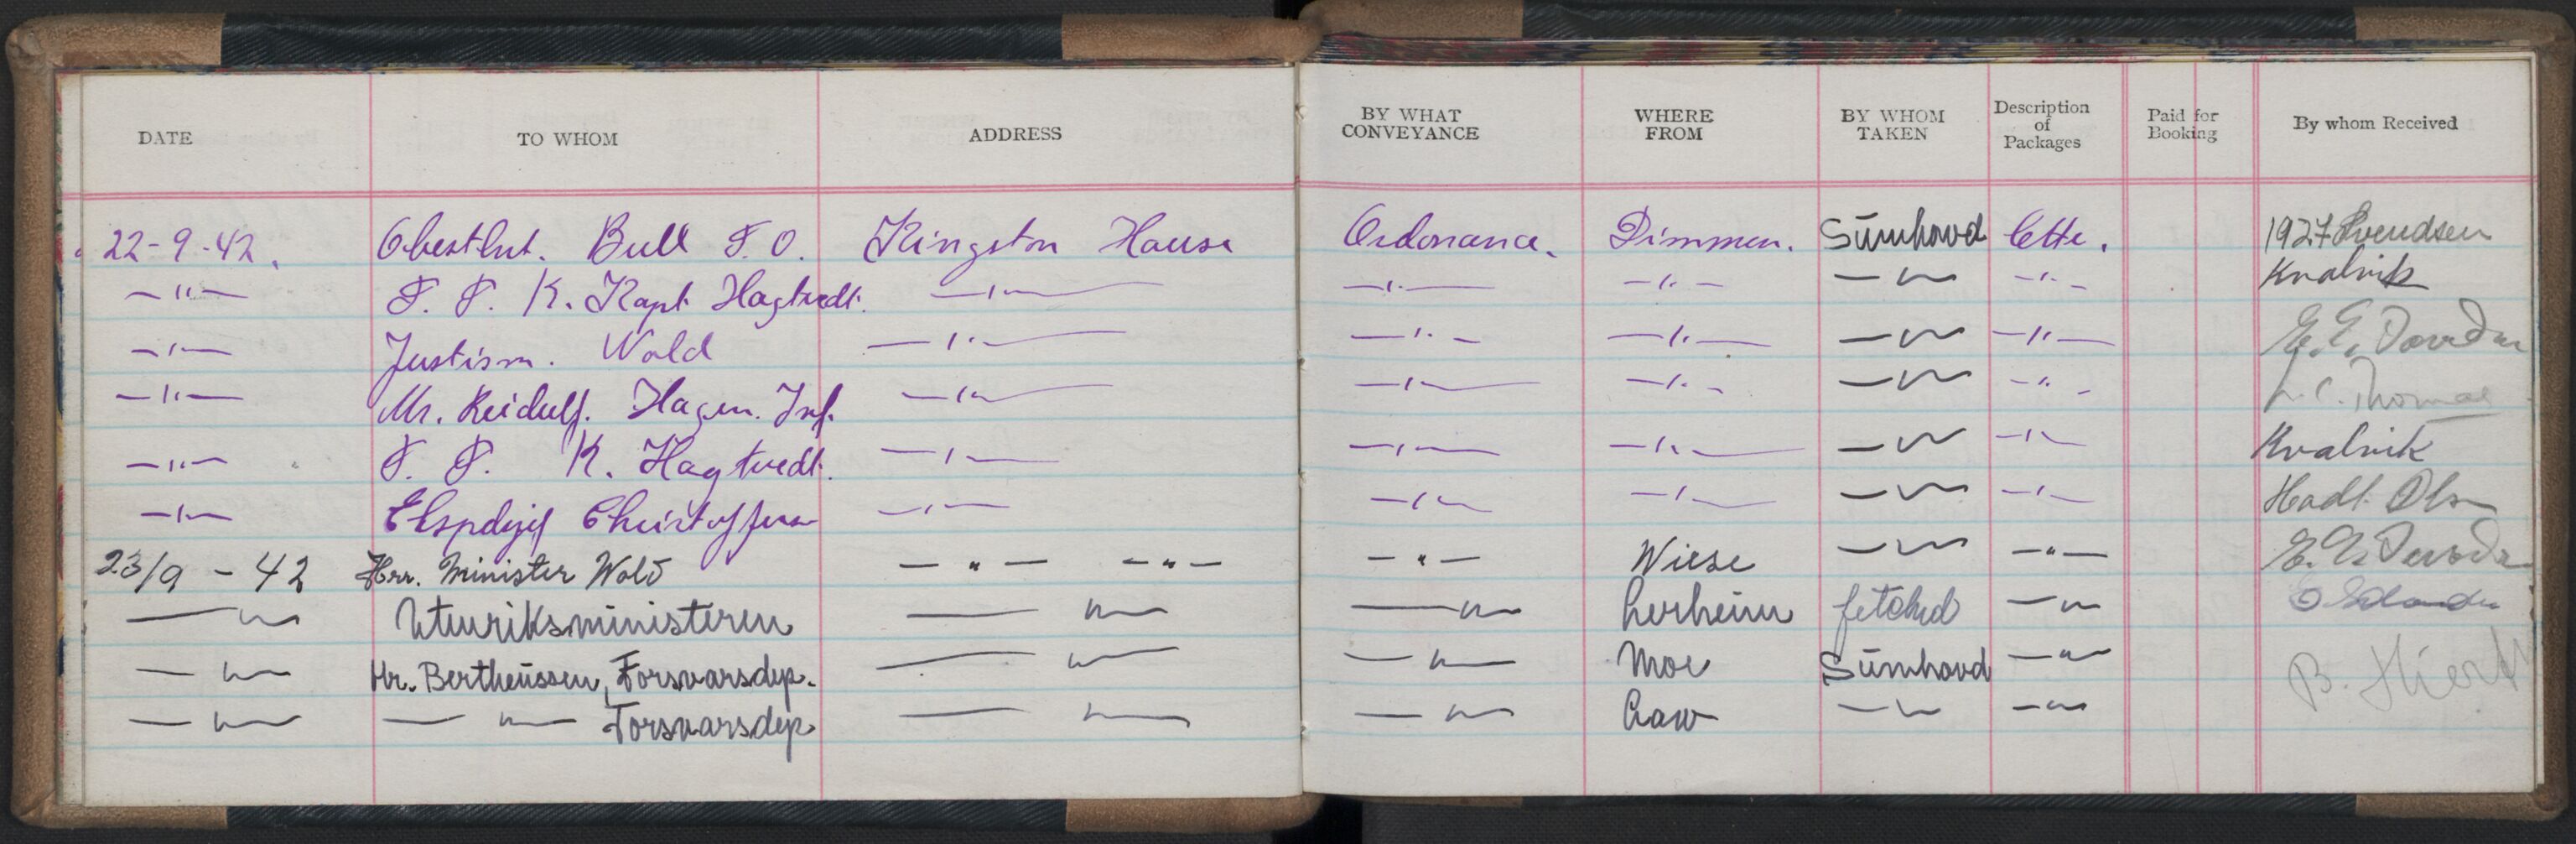 DATE TO WHOM ADDRESS BY WHAT CONVEYANCE WHERE FROM BY WHOM TAKEN Description of Packages Paid for Booking By whom Received
22-9-42. Obestlut. Bull F.O. Kingston House Ordonance. Dimmen. Sūmhovd 1927 Svendsen
-"- F. P. K. Kapt Hagtvedt. -"- -"- -"- -"- -"- Kvalvik
-"- Justism. Wold -"- -"- -"- -"- -"- E.E.
-"- Mr. Reidulf. Hagen. Inf. -"- -"- -"- -"- -"- Thomas
-"- F. P. K. Hagtvedt. -"- -"- -"- -"- -"- Kvalvik
-"- Christoffersen -"- -"- -"- -"- -"- Olsen
23/9 - 42 Hrr. Minister Wold -"- -"- -"- Wiese -"- -"- E.E.
-"- Utenriksministeren -"- -"- Lerheim fetched -"-
-"- Hr. Bertheūssen, Forsvarsdep. -"- -"- Moe Sūmhovd -"- B. Hiorth
-"- -"- Forsvarsdep -"- -"- -"- -"-